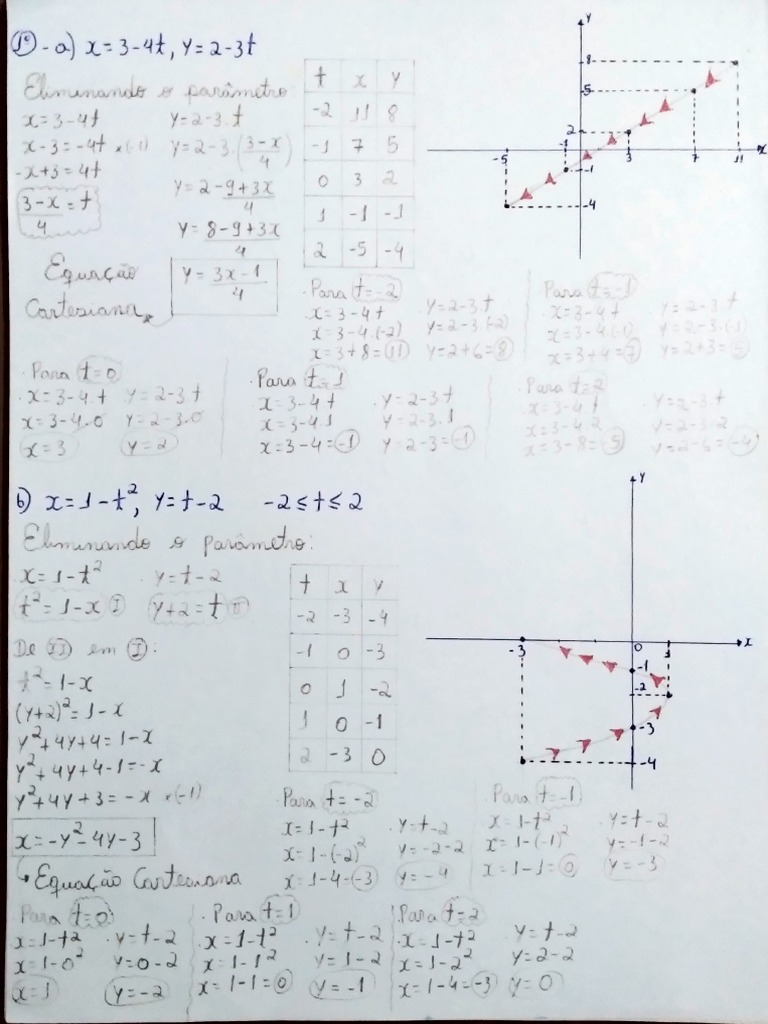 1º - a) x = 3 - 4t, y = 2 - 3t
Eliminando o parâmetro:
x = 3 - 4t    y = 2 - 3.t
x - 3 = -4t ×(-1)    y = 2 - 3.(3-x/4)
-x + 3 = 4t    y = 2 - 9+3x/4
3-x/4 = t    y = 8-9+3x/4
Equação Cartesiana    y = 3x-1/4
t x y
-2 11 8
-1 7 5
0 3 2
1 -1 -1
2 -5 -4
y
8
5
2
-1
-5 3 7 11 x
-1
-4
. Para t=-2
x = 3 - 4t    y = 2 - 3.t
x = 3 - 4.(-2)    y = 2 - 3.(-2)
x = 3 + 8 = 11    y = 2 + 6 = 8
. Para t=-1
x = 3 - 4t    y = 2 - 3.t
x = 3 - 4.(-1)    y = 2 - 3.(-1)
x = 3 + 4 = 7    y = 2 + 3 = 5
. Para t=0
x = 3 - 4.t    y = 2 - 3t
x = 3 - 4.0    y = 2 - 3.0
x = 3    y = 2
. Para t=1
x = 3 - 4t    . y = 2 - 3t
x = 3 - 4.1    y = 2 - 3.1
x = 3 - 4 = -1    y = 2 - 3 = -1
. Para t=2
x = 3 - 4t    y = 2 - 3.t
x = 3 - 4.2    y = 2 - 3.2
x = 3 - 8 = -5    y = 2 - 6 = -4
b) x = 1 - t², y = t - 2    -2 ≤ t ≤ 2
Eliminando o parâmetro:
x = 1 - t²    . y = t - 2
t² = 1 - x I    y + 2 = t II
De II em I:
t² = 1 - x
(y+2)² = 1 - x
y² + 4y + 4 = 1 - x
y² + 4y + 4 - 1 = -x
y² + 4y + 3 = -x ×(-1)
x = -y² - 4y - 3
Equação Cartesiana
t x y
-2 -3 -4
-1 0 -3
0 1 -2
1 0 -1
2 -3 0
y
-3 0 1 x
-1
-2
-3
-4
Para t=-2
x = 1 - t²    . y = t - 2
x = 1 - (-2)²    y = -2 - 2
x = 1 - 4 = -3    y = -4
Para t=-1
x = 1 - t²    y = t - 2
x = 1 - (-1)²    y = -1 - 2
x = 1 - 1 = 0    y = -3
Para t=0:
x = 1 - t²    . y = t - 2
x = 1 - 0²    y = 0 - 2
x = 1    y = -2
. Para t=1
x = 1 - t²    . y = t - 2
x = 1 - 1²    y = 1 - 2
x = 1 - 1 = 0    y = -1
Para t=2
x = 1 - t²    y = t - 2
x = 1 - 2²    y = 2 - 2
x = 1 - 4 = -3    y = 0